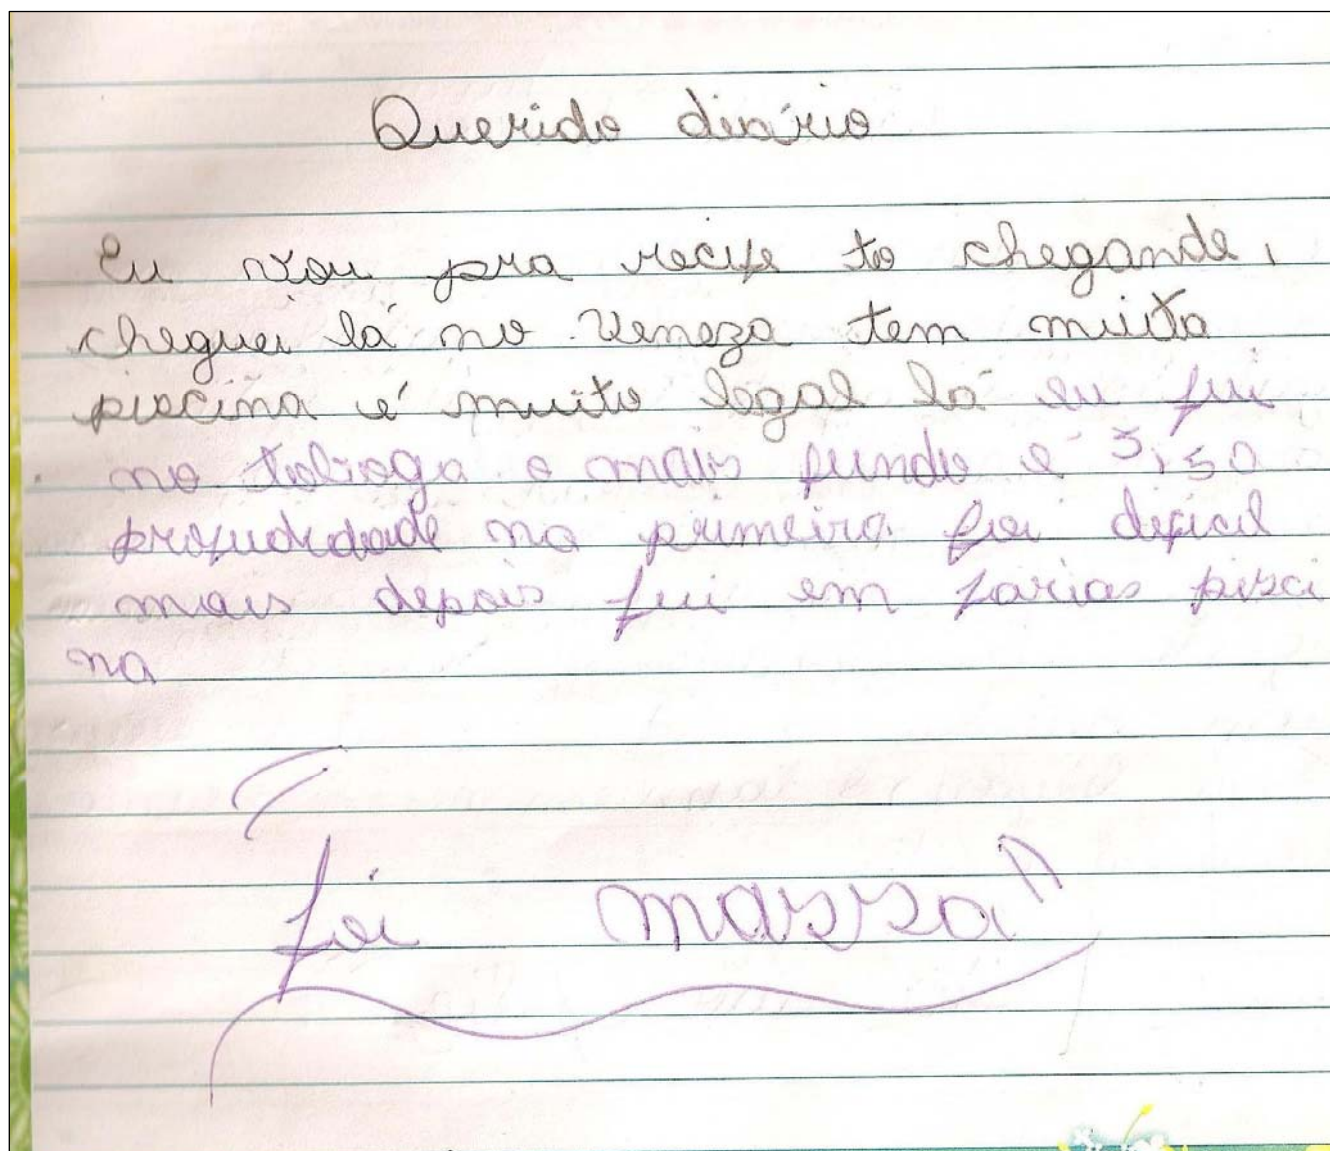 Querido diário
Eu vou pra recife to chegande,
cheguei lá no Veneza tem muita
piscina é muito legal lá eu fui
no toboga o mais fundo é 3,50
profudidade na primeira foi dificil
mais depois fui em farias pisci
na
foi massa